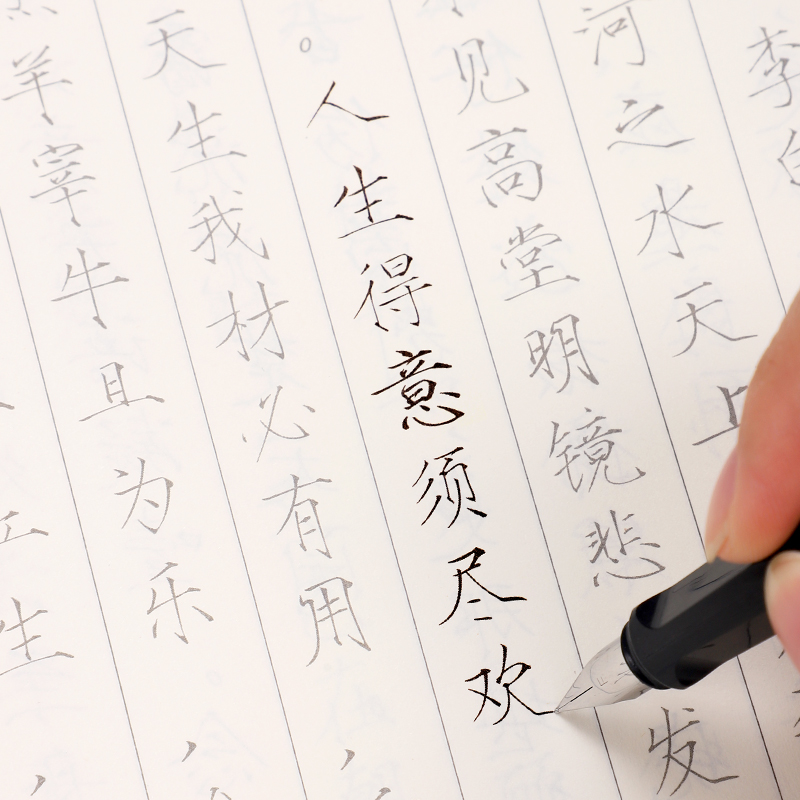 李白
河之水天上
见高堂明镜悲发
。人生得意须尽欢
天生我材必有用，
羊宰牛且为乐，
生，